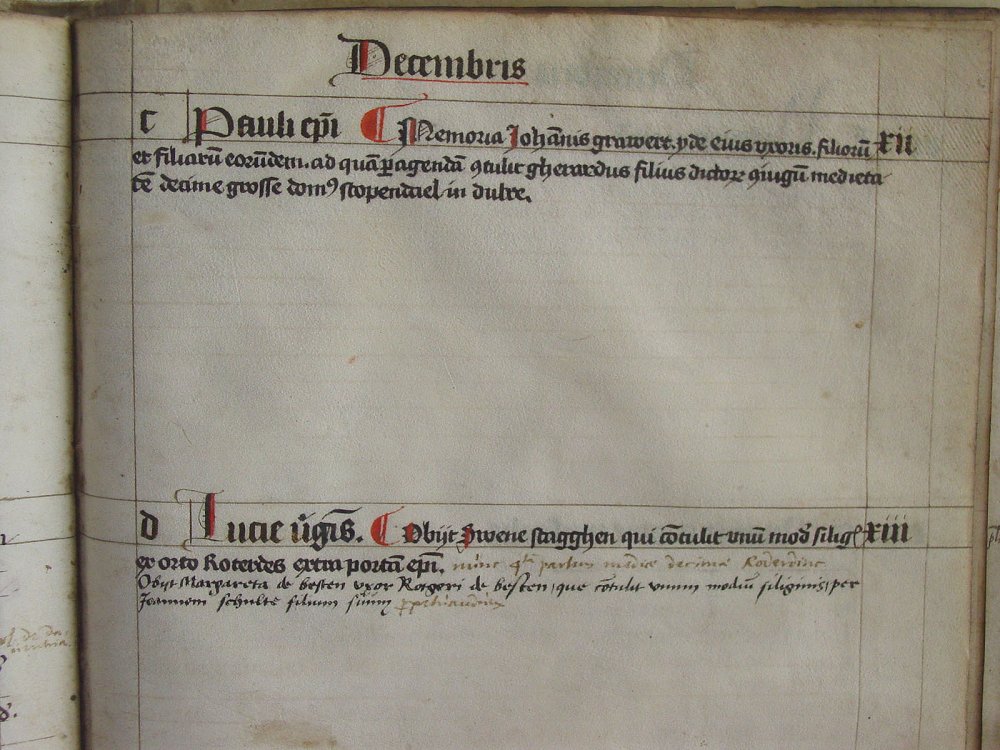 Decembris
c Pauli epi Memoria Johānis grawert. yde eius vxoris. filiorū XII
et filiarū eorūdem. ad quā peragendā 9tulit gherardus filius dictorꝝ 9iugū medieta
tē decime grosse dom9 stopendael in dulre.
d Lucie v̄gīs. Obijt Zwene stagghen qui cōtulit vnū mod' silig' xiii
ex orto Roterdes extra portā epī. nunc partum decima
Obijt Margareta de besten vxor Rotgeri de besten, que cōtulit vnum modiū siliginis, per
Joannem schulte filium suum